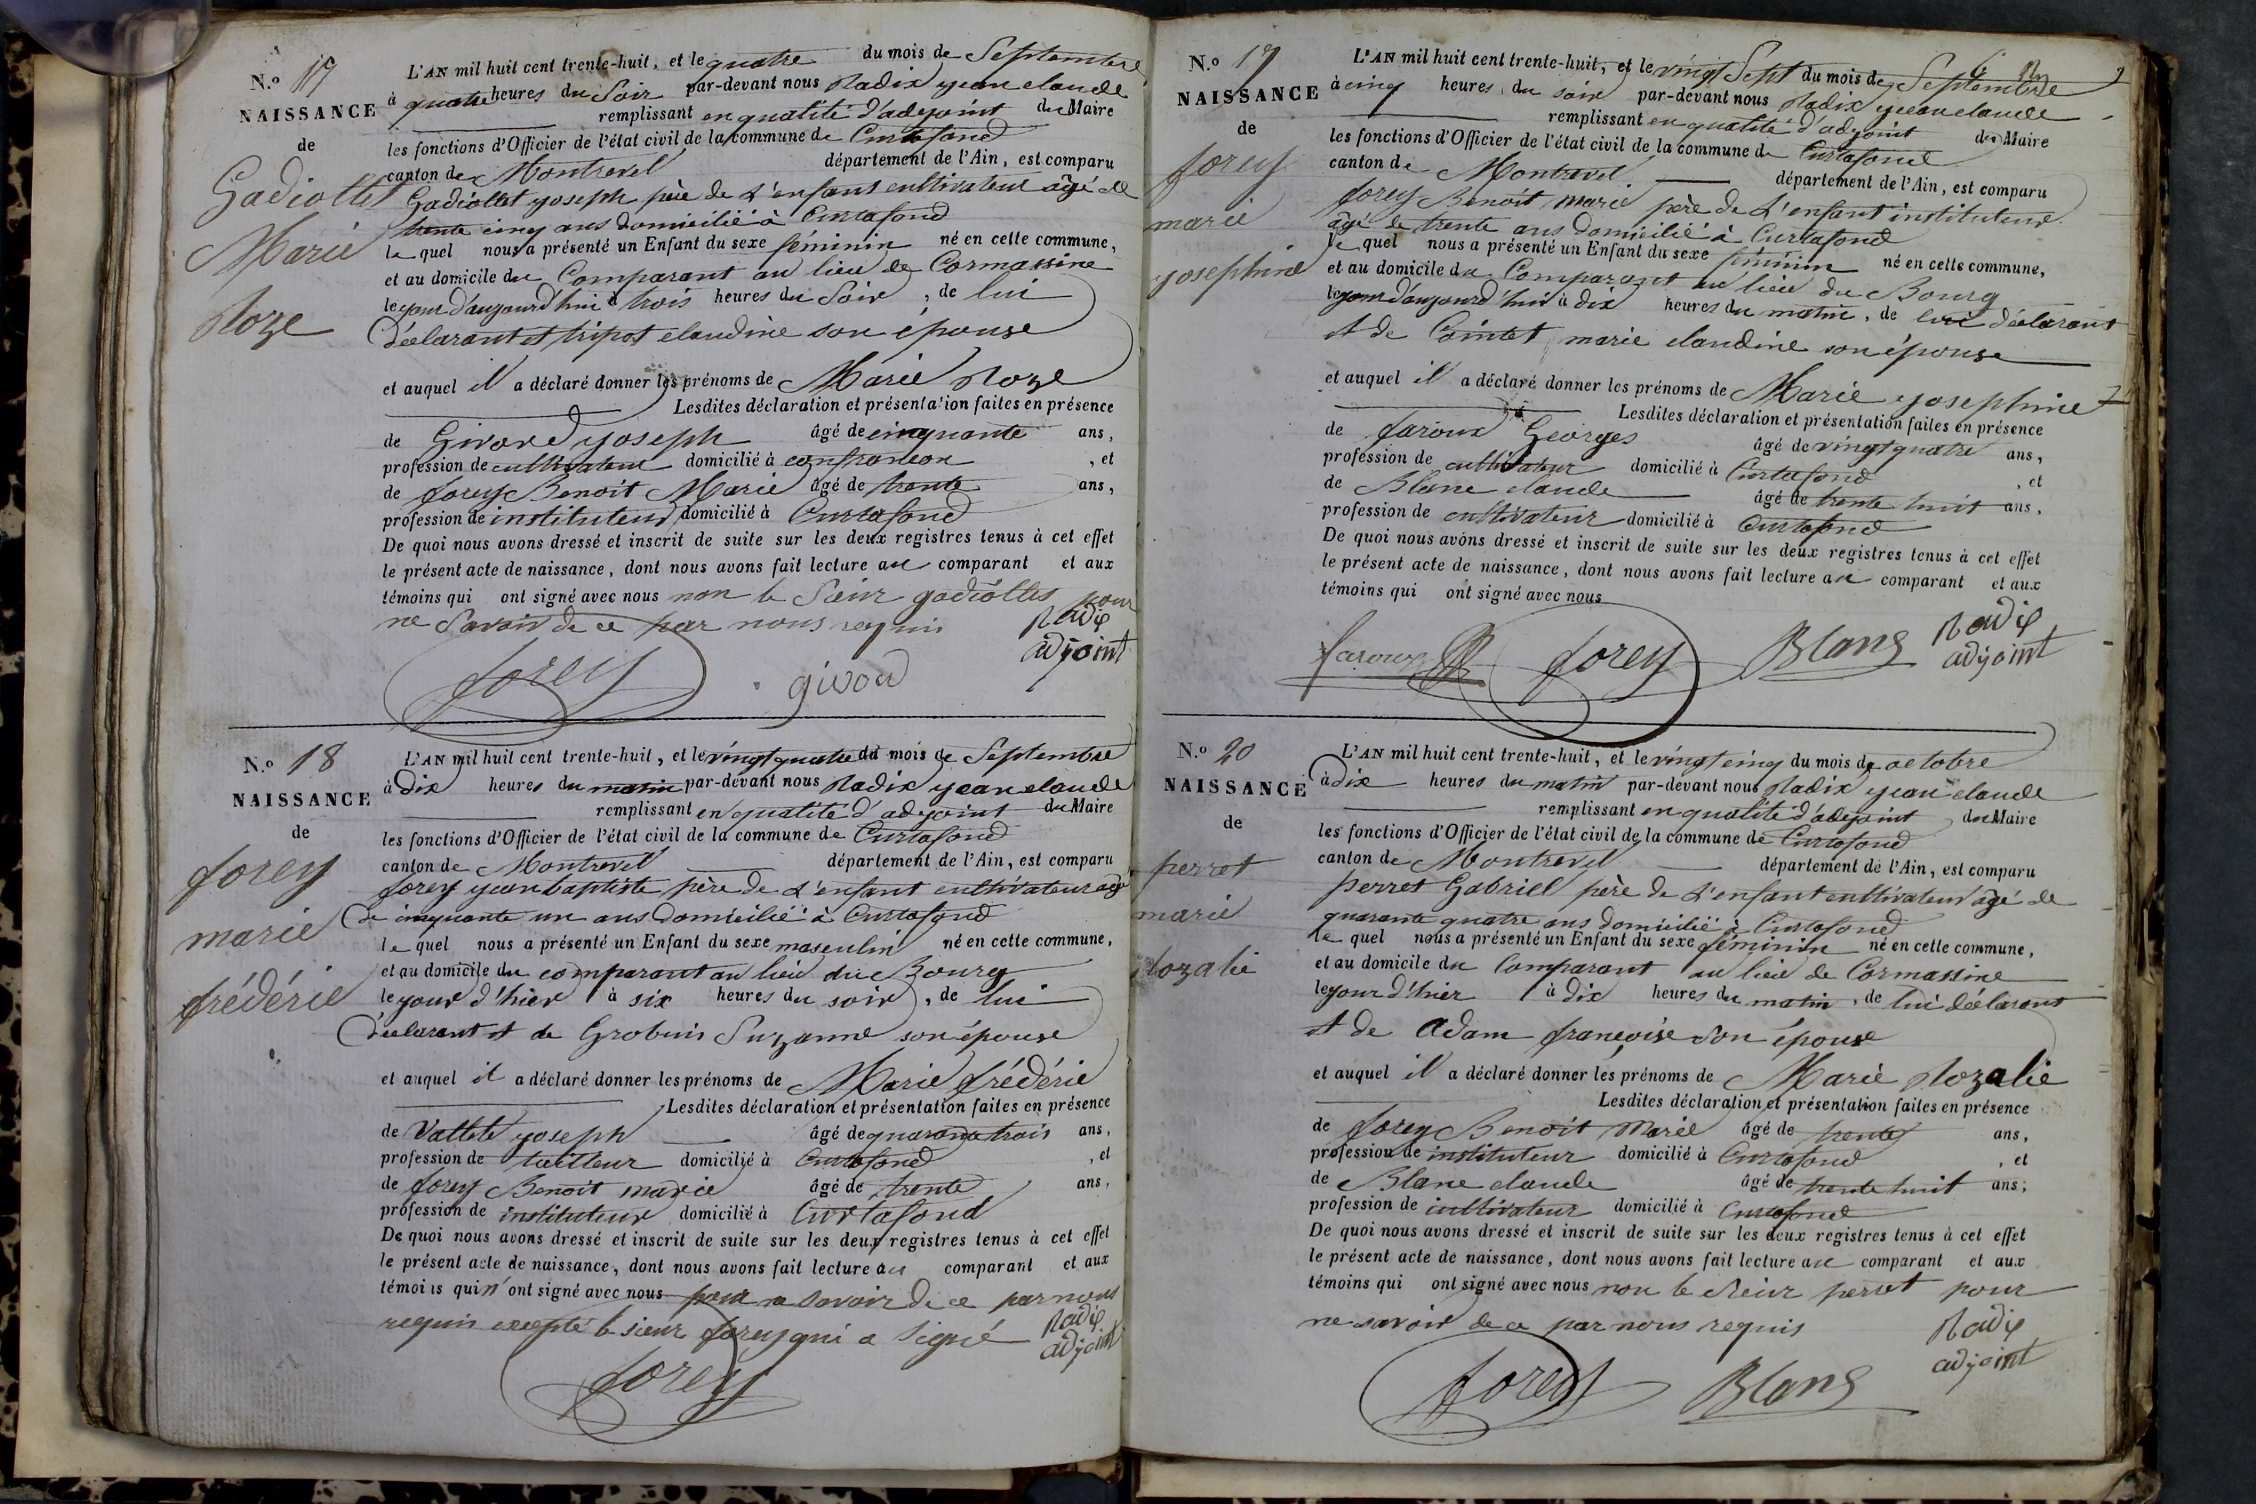 N.o 17
NAISSANCE
de
Gadiollet
Marie
Roze
L'AN mil huit cent trente-huit, et le quatre du mois de Septembre
à quatre heures du Soir par-devant nous Radix jean claude
remplissant en qualité d'adjoint du Maire
les fonctions d'Officier de l'état civil de la commune de Curtafond
canton de Montrevel département de l'Ain, est comparu
Gadiollet joseph père de L'enfant cultivateur âgé de
trente cinq ans domicilié à Curtafond
le quel nous a présenté un Enfant du sexe féminin né en cette commune,
et au domicile du Comparant au lieu de Cormassine
le jour d'aujourd'hui à trois heures du Soir, de lui
Déclarant et tripot claudine son épouse
et auquel il a déclaré donner les prénoms de Marie Roze
Lesdites déclaration et présentation faites en présence
de Girard joseph âgé de cinquante ans,
profession de cultivateur domicilié à confrancon, et
de forey Benoit Marie âgé de trente ans,
profession de instituteur domicilié à Curtafond
De quoi nous avons dressé et inscrit de suite sur les deux registres tenus à cet effet
le présent acte de naissance, dont nous avons fait lecture au comparant et aux
témoins qui ont signé avec nous non le Sieur gadiollet pour
ne Savoir de ce par nous requis
Radix
adjoint
forey girod
N.o 18
NAISSANCE
de
forey
marie
frédéric
L'AN mil huit cent trente-huit, et le vingt quatre du mois de Septembre
à Dix heures du matin par-devant nous Radix jean claude
remplissant en qualité d'adjoint du Maire
les fonctions d'Officier de l'état civil de la commune de Curtafond
canton de Montrevel département de l'Ain, est comparu
forey jean baptiste père de L'enfant cultivateur agé
de cinquante un ans domicilié à Curtafond
le quel nous a présenté un Enfant du sexe masculin né en cette commune,
et au domicile du comparant au lieu du Bourg
le jour d'hier à six heures du soir, de lui
Déclarant et de Grobuis Suzanne son épouse
et auquel il a déclaré donner les prénoms de Marie frédéric
Lesdites déclaration et présentation faites en présence
de Vallete joseph âgé de quarante trois ans,
profession de tailleur domicilié à Curtafond, et
de forey Benoit marie âgé de trente ans,
profession de instituteur domicilié à Curtafond
De quoi nous avons dressé et inscrit de suite sur les deux registres tenus à cet effet
le présent acte de naissance, dont nous avons fait lecture au comparant et aux
témoins qui n'ont signé avec nous pour ne savoir de ce par nous
requis excepté le sieur forey qui a Signé
Radix
adjoint
forey
N.o 19
NAISSANCE
de
forey
marie
josephine
L'AN mil huit cent trente-huit, et le vingt Sept du mois de Septembre
à cinq heures du soir par-devant nous Radix jean claude
remplissant en qualité d'adjoint du Maire
les fonctions d'Officier de l'état civil de la commune de Curtafond
canton de Montrevel département de l'Ain, est comparu
forey Benoit marie père de L'enfant instituteur
âgé de trente ans domicilié à Curtafond
le quel nous a présenté un Enfant du sexe féminin né en cette commune,
et au domicile du Comparant au lieu du Bourg
le jour d'aujourd'hui à dix heures du matin, de lui déclarant
et de Cointet marie claudine son épouse
et auquel il a déclaré donner les prénoms de Marie josephine
Lesdites déclaration et présentation faites en présence
de faroux Georges âgé de vingt quatre ans,
profession de cultivateur domicilié à Curtafond, et
de Blanc claude âgé de trente huit ans,
profession de cultivateur domicilié à Curtafond
De quoi nous avons dressé et inscrit de suite sur les deux registres tenus à cet effet
le présent acte de naissance, dont nous avons fait lecture au comparant et aux
témoins qui ont signé avec nous
faroux forey Blanc Radix
adjoint
N.o 20
NAISSANCE
de
perret
marie
Rozalie
L'AN mil huit cent trente-huit, et le vingt cinq du mois de octobre
à dix heures du matin par-devant nous Radix jean claude
remplissant en qualité d'adjoint du Maire
les fonctions d'Officier de l'état civil de la commune de Curtafond
canton de Montrevel département de l'Ain, est comparu
perret Gabriel père de L'enfant cultivateur âgé de
quarante quatre ans domicilié à Curtafond
le quel nous a présenté un Enfant du sexe féminin né en cette commune,
et au domicile du Comparant au lieu de Cormassine
le jour d'hier à dix heures du matin, de lui déclarant
et de Adam françoise son épouse
et auquel il a déclaré donner les prénoms de Marie Rozalie
Lesdites déclaration et présentation faites en présence
de forey Benoit Marie âgé de trente ans,
profession de instituteur domicilié à Curtafond, et
de Blanc claude âgé de trente huit ans,
profession de cultivateur domicilié à Curtafond
De quoi nous avons dressé et inscrit de suite sur les deux registres tenus à cet effet
le présent acte de naissance, dont nous avons fait lecture au comparant et aux
témoins qui ont signé avec nous non le Sieur perret pour
ne savoir de ce par nous requis
Radix
adjoint
forey Blanc